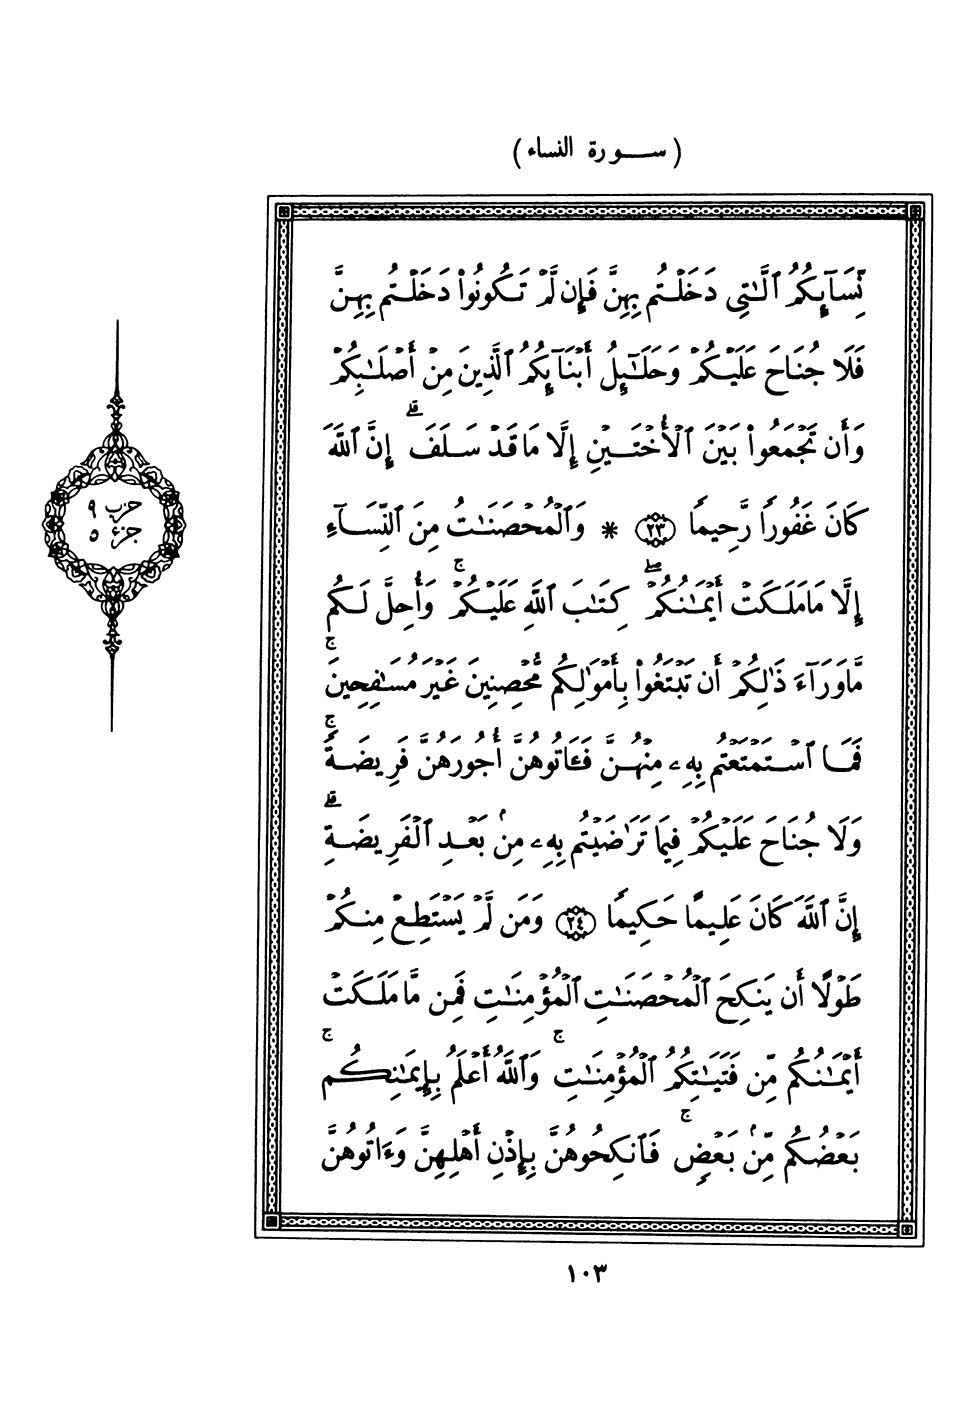 (ســورة النساء)
نِّسَآئِكُمُ ٱلَّٰتِى دَخَلْتُم بِهِنَّ فَإِن لَّمْ تَكُونُوا۟ دَخَلْتُم بِهِنَّ
فَلَا جُنَاحَ عَلَيْكُمْ وَحَلَٰٓئِلُ أَبْنَآئِكُمُ ٱلَّذِينَ مِنْ أَصْلَٰبِكُمْ
وَأَن تَجْمَعُوا۟ بَيْنَ ٱلْأُخْتَيْنِ إِلَّا مَا قَدْ سَلَفَ ۗ إِنَّ ٱللَّهَ
كَانَ غَفُورًا رَّحِيمًا ٢٣ * وَٱلْمُحْصَنَٰتُ مِنَ ٱلنِّسَآءِ
إِلَّا مَا مَلَكَتْ أَيْمَٰنُكُمْ ۖ كِتَٰبَ ٱللَّهِ عَلَيْكُمْ ۚ وَأُحِلَّ لَكُم
مَّا وَرَآءَ ذَٰلِكُمْ أَن تَبْتَغُوا۟ بِأَمْوَٰلِكُم مُّحْصِنِينَ غَيْرَ مُسَٰفِحِينَ ۚ
فَمَا ٱسْتَمْتَعْتُم بِهِۦ مِنْهُنَّ فَـَٔاتُوهُنَّ أُجُورَهُنَّ فَرِيضَةً ۚ
وَلَا جُنَاحَ عَلَيْكُمْ فِيمَا تَرَٰضَيْتُم بِهِۦ مِنۢ بَعْدِ ٱلْفَرِيضَةِ ۗ
إِنَّ ٱللَّهَ كَانَ عَلِيمًا حَكِيمًا ٢٤ وَمَن لَّمْ يَسْتَطِعْ مِنكُمْ
طَوْلًا أَن يَنكِحَ ٱلْمُحْصَنَٰتِ ٱلْمُؤْمِنَٰتِ فَمِن مَّا مَلَكَتْ
أَيْمَٰنُكُم مِّن فَتَيَٰتِكُمُ ٱلْمُؤْمِنَٰتِ ۚ وَٱللَّهُ أَعْلَمُ بِإِيمَٰنِكُم ۚ
بَعْضُكُم مِّنۢ بَعْضٍ ۚ فَٱنكِحُوهُنَّ بِإِذْنِ أَهْلِهِنَّ وَءَاتُوهُنَّ
حزب ٩
جزء ٥
١٠٣